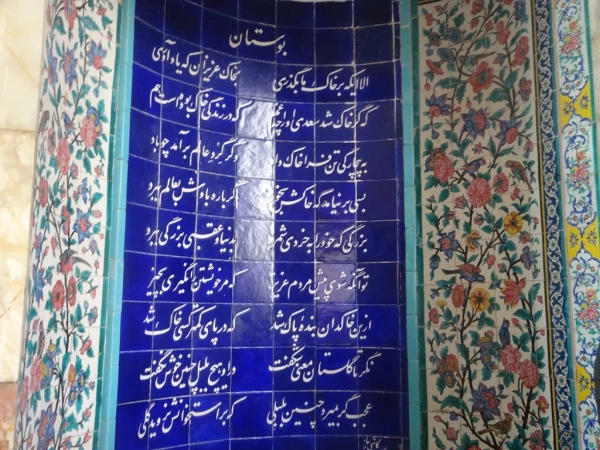 بوستان
الا ایکه بر خاک ما بگذری بخاک عزیزان که یاد آوری
که گر خاک شد سعدی او را چه غم که در زندگی خاک بوده است هم
به بیچارگی تن فرا خاک داد وگر گرد عالم برآمد چو باد
بسی برنیامد که خاکش بخورد دگر باره بادش بعالم ببرد
بزرگی که خود را به خردی شمرد بدنیا و عقبی بزرگی ببرد
تو آنگه شوی پیش مردم عزیز که مر خویشتن را نگیری بچیز
ازین خاکدان بنده پاک شد که در پای کمتر کسی خاک شد
نگر تا گلستان معنی شکفت در او هیچ بلبل چنین خوش نگفت
عجب گر بمیرد چنین بلبلی که بر استخوانش نروید گلی